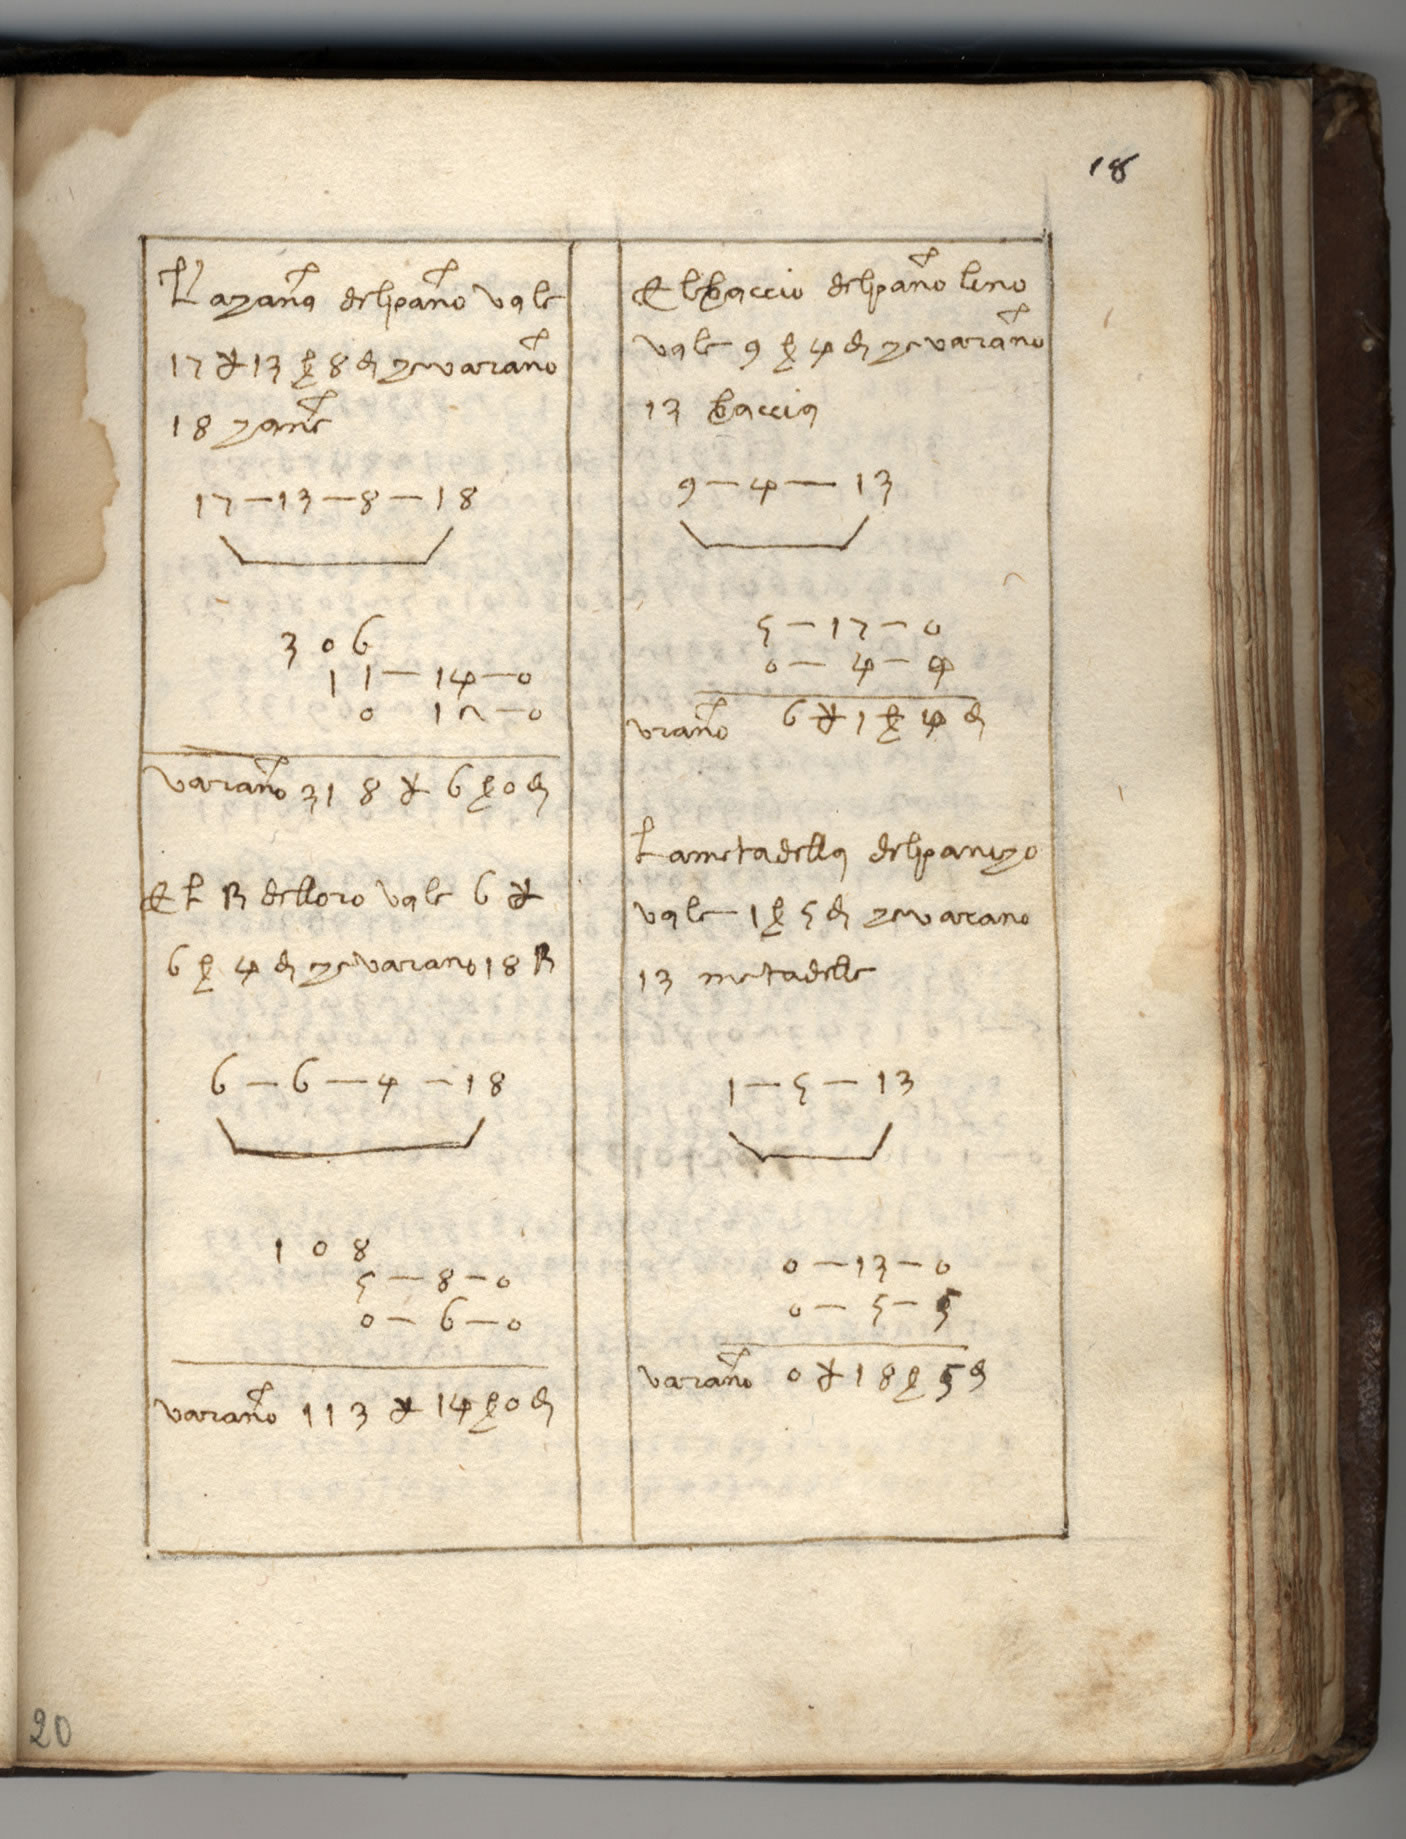 18
La zanna del panno vale
17 ₶ 13 ß 8 ₰ ze varanno
18 zanne
17 — 13 — 8 — 18
306
11 — 14 — 0
0 12 — 0
varanno 318 ₶ 6 ß 0 ₰
El R delloro vale 6 ₶
6 ß 4 ₰ ze varano 18 R
6 — 6 — 4 — 18
108
5 — 8 — 0
0 — 6 — 0
varanno 113 ₶ 14 ß 0 ₰
El braccio del panno lino
vale 9 ß 4 ₰ ze varanno
13 braccia
9 — 4 — 13
5 — 17 — 0
0 — 4 — 4
vranno 6 ₶ 1 ß 4 ₰
La metadella del panizo
vale 1 ß 5 ₰ ze varano
13 metadelle
1 — 5 — 13
0 — 13 — 0
0 — 5 — 5
varanno 0 ₶ 18 ß 5 ₰
20